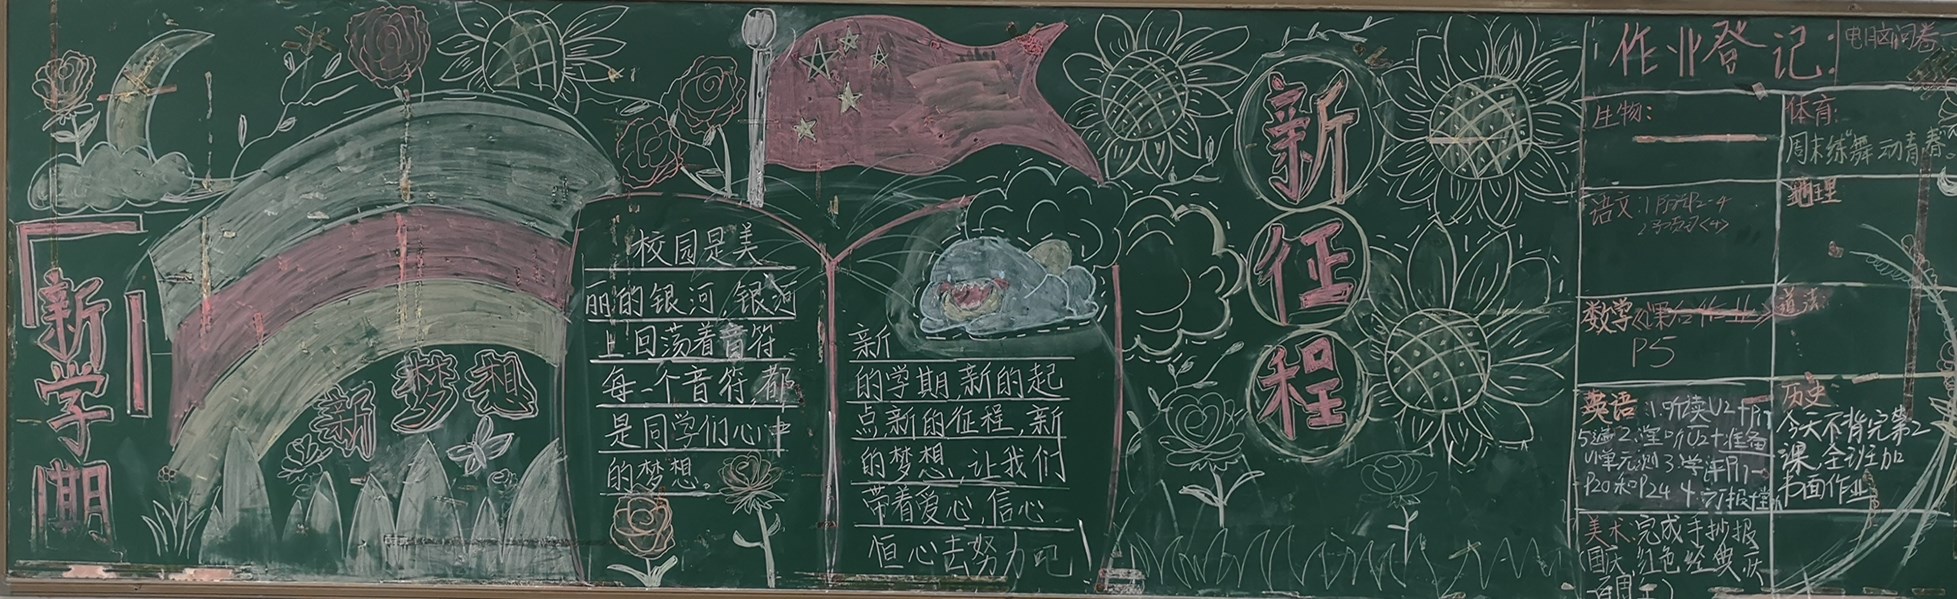 新学期
新梦想
校园是美
丽的银河,银河
上回荡着音符
每一个音符,都
是同学们心中
的梦想。
新
的学期,新的起
点,新的征程,新
的梦想,让我们
带着爱心,信心
恒心去努力吧
新征程
作业登记:
电脑问卷
生物:
体育:
周末练舞动青春
语文:
地理
数学《课后作业》
P5
道法:
英语:1.听读U2+P17
U单元测
P20和P24
历史
今天不背完第2
课,全班加
书面作业
美术:完成手抄报
国庆,红色经典,庆